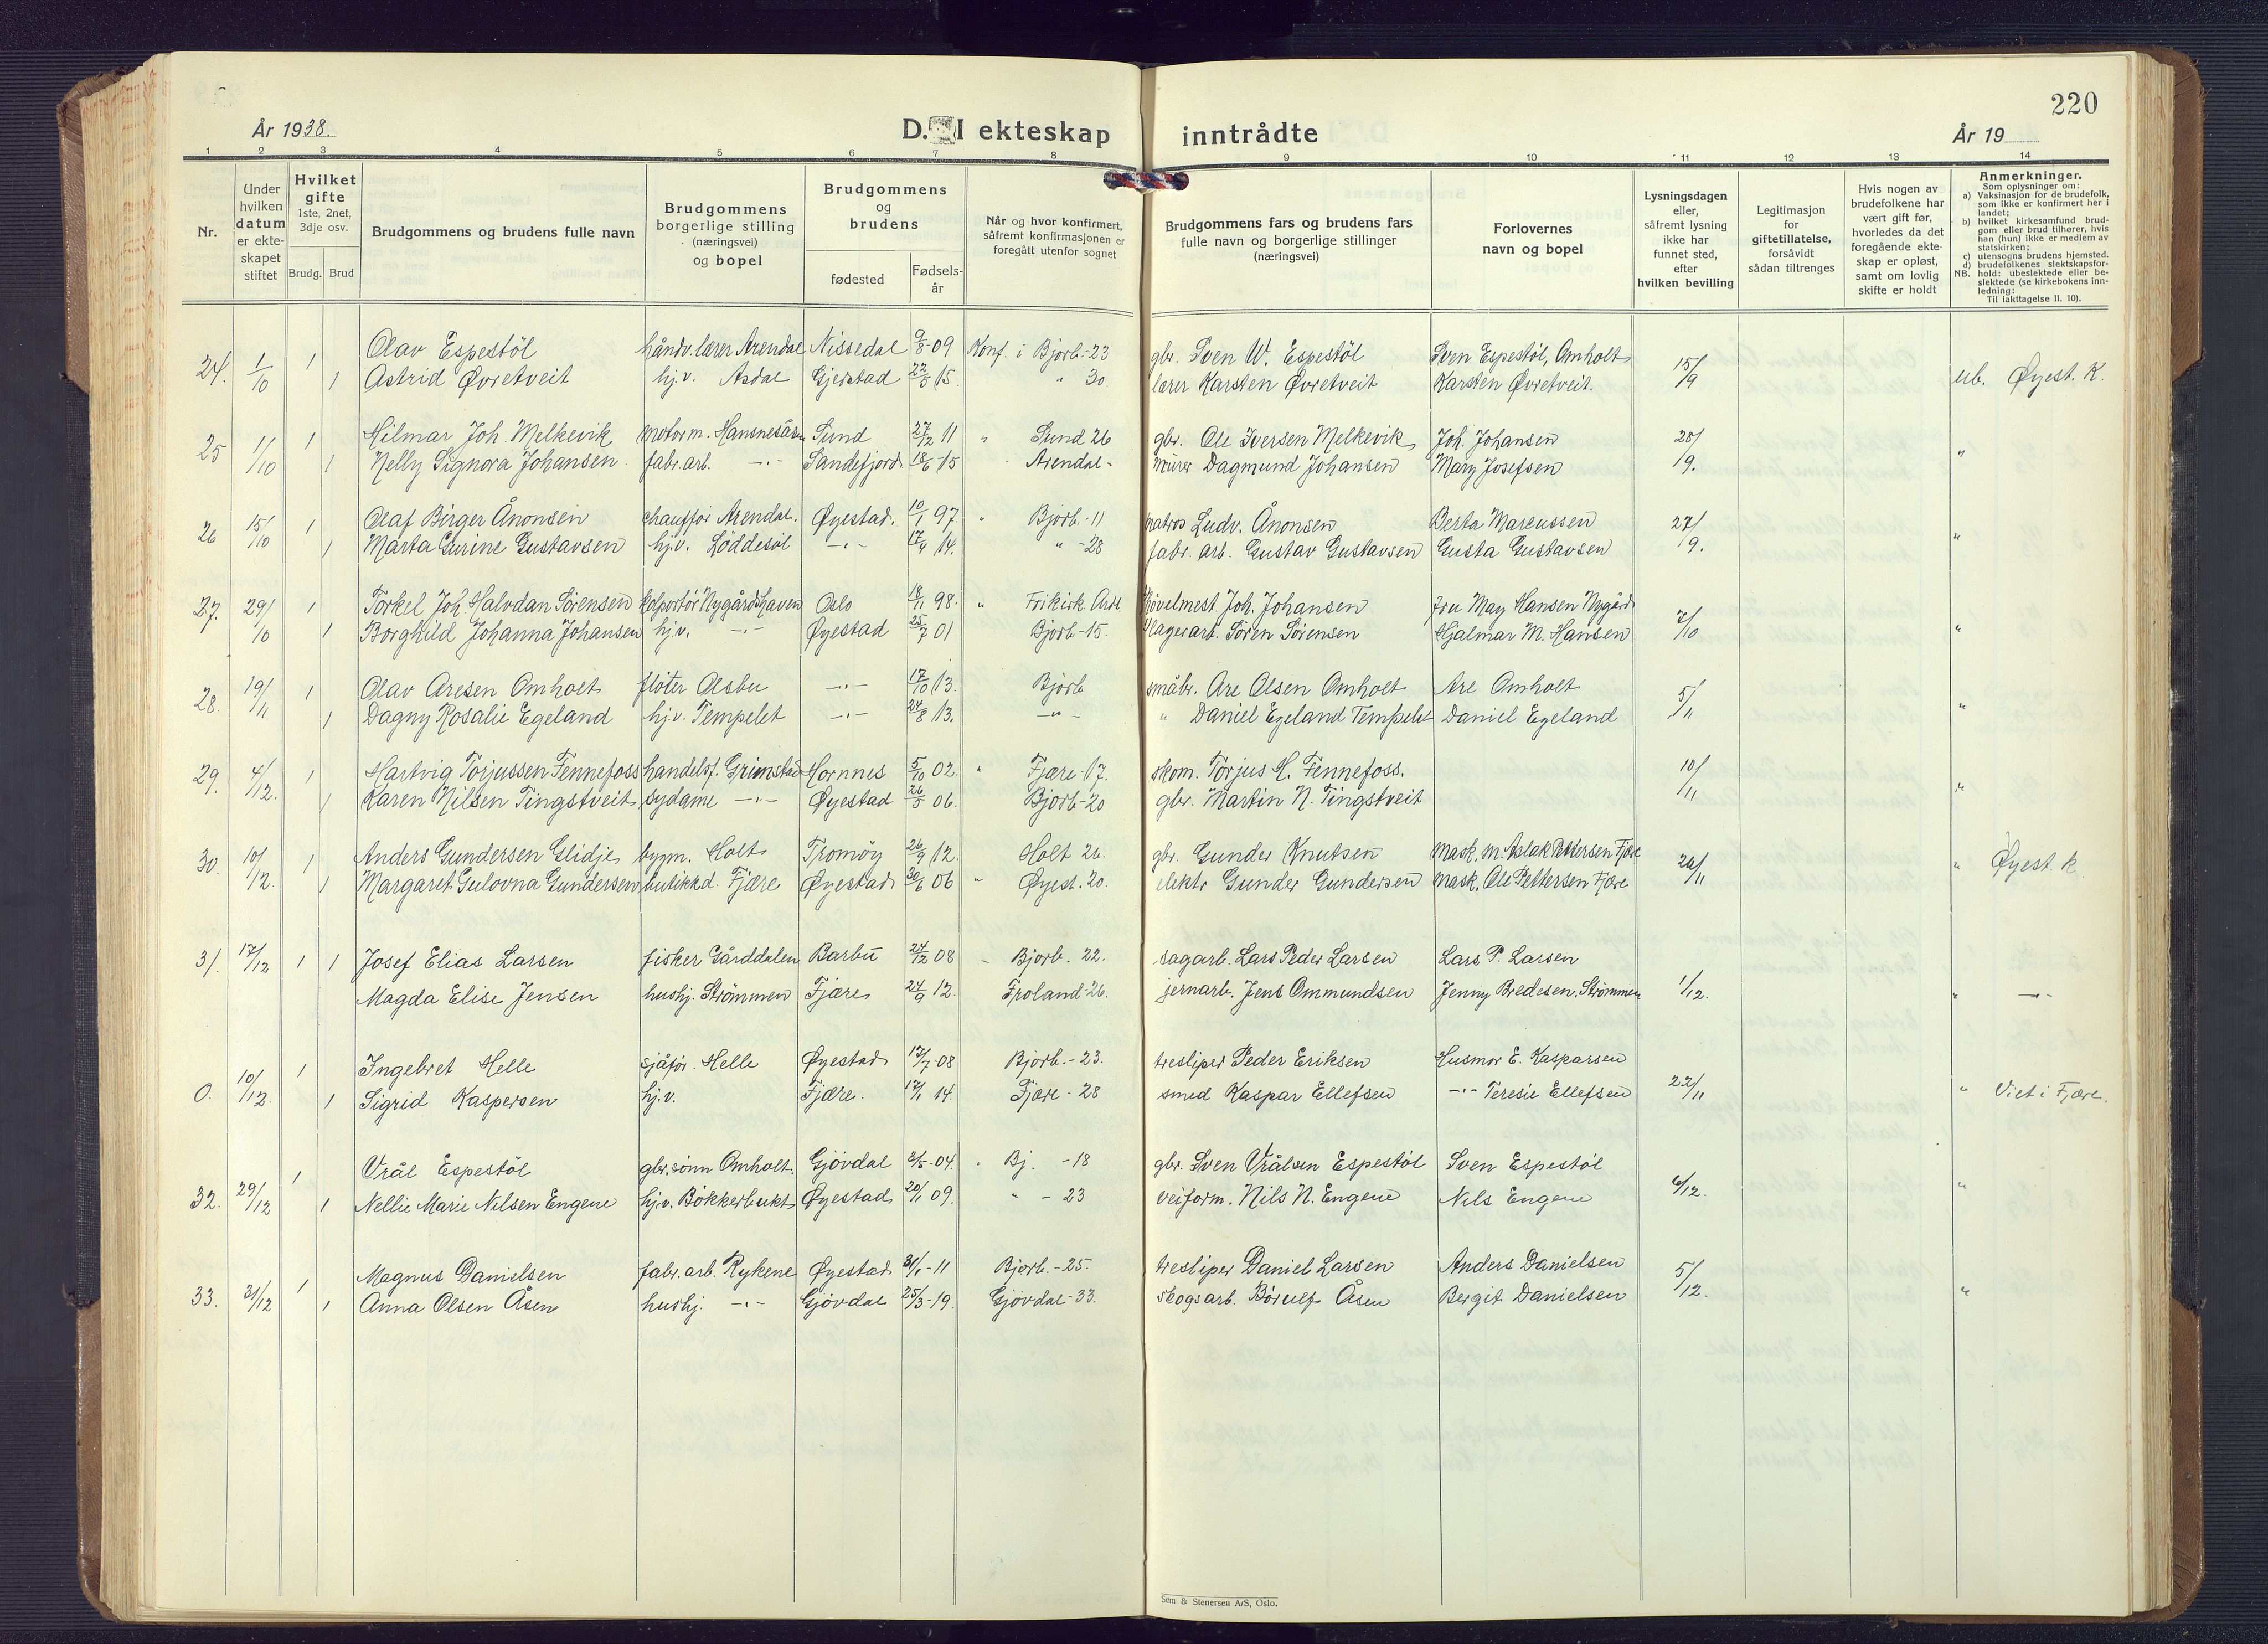 220
År 1938.
D. I ekteskap inntrådte
År 19
1 2 3 4 5 6 7 8 9 10 11 12 13 14
Nr.
Under hvilken datum er ekte-skapet stiftet
Hvilket gifte 1ste, 2net, 3dje osv.
Brudg. Brud
Brudgommens og brudens fulle navn
Brudgommens borgerlige stilling (næringsvei) og bopel
Brudgommens og brudens
fødested
Fødsels-år
Når og hvor konfirmert, såfremt konfirmasjonen er foregått utenfor sognet
Brudgommens fars og brudens fars fulle navn og borgerlige stillinger (næringsvei)
Forlovernes navn og bopel
Lysningsdagen eller, såfremt lysning ikke har funnet sted, efter hvilken bevilling
Legitimasjon for giftetillatelse, forsåvidt sådan tiltrenges
Hvis nogen av brudefolkene har vært gift før, hvorledes da det foregående ekte-skap er opløst, samt om lovlig skifte er holdt
Anmerkninger.
Som oplysninger om:
a) Vaksinasjon for de brudefolk, som ikke er konfirmert her i landet;
b) hvilket kirkesamfund brud-gom eller brud tilhører, hvis han (hun) ikke er medlem av statskirken;
c) utensogns brudens hjemsted.
d) brudefolkenes slektskapsfor-
NB. hold: ubeslektede eller be-slektede (se kirkebokens inn-ledning:
Til iakttagelse II. 10).
24. 1/10 1 Olav Espestöl håndv.lærer Arendal Nissedal 9/8-09 Konf. i Bjorb.-23 gbr. Sven W. Espestöl Sven Espestöl, Omholt 15/9 ub. Øyest. K.
1 Astrid Øvretveit hj.v. Asdal Gjerstad 22/3 15. " 30. lærer Karsten Øvretveit Karsten Øvretveit.
25 1/10 1 Hilmar Joh. Melkevik motorm. Sund 27/12 11 " Sund 26 gbr. Ole Iversen Melkevik Joh. Johansen 28/9. "
1 Nelly Signora Johansen fabr.arb. -"- Sandefjord 18/6 15 Arendal- murer Dagmund Johansen Mary Josefsen
26 15/10 1 Olaf Birger Ånonsen chauffør Arendal. Øyestad. 10/1 97 " Bjorb.-11 matros Ludv. Ånonsen Berta Marcussen 27/9. "
1 Marta Gurine Gustavsen hj.v. Løddesøl -"- 17/4 14. " -28 fabr. arb. Gustav Gustavsen Gusta Gustavsen
27. 29/10 1 Torkel Joh. Halvdan Sörensen kolportör Nygårdshaven Oslo 18/11 98. " Frikirk. Ardl. hövelmest. Joh. Johansen fru May Hansen Nygård 7/10 "
1 Borghild Johanna Johansen hj.v. -"- Øyestad 25/7 01 Bjorb-15. lagerarb. Sören Sörensen Hjalmar M. Hansen
28. 19/11 1 Olav Aresen Omholt flöter Olsbu -"- 17/10 13. Bjorb småbr. Are Olsen Omholt Are Omholt 5/11 "
1 Dagny Rosalie Egeland hj.v. Tempelet -"- 24/8 13. -"- " Daniel Egeland Tempelet Daniel Egeland
29. 4/12. 1 Hartvig Torjussen Fennefoss handelsf. Grimstad Hornnes 5/10 02. " Fjære-17. skom. Torjus H. Fennefoss. 10/11 "
1 Karen Nilsen Tingstveit sydame -"- Øyestad 26/5 06. Bjorb-20 gbr. Martin N. Tingstveit
30. 10/12. 1 Anders Gundersen Glidje bygm. Holt Tromöy 26/9 12. Holt 26. gbr. Gunder Knutsen mask. m. Aslak Pettersen Fjære 24/11 " Øyest. k.
1 Margaret Gulovna Gundersen butikkd. Fjære Øyestad 30/6 06 " Øyest. 20. elektr Gunder Gundersen mask. Ole Pettersen Fjære
31. 17/12 1 1 Josef Elias Larsen fisker Gårddalen Barbu 24/12 08 - Bjorb. 22. sagarb. Lars Peder Larsen Lars P. Larsen
Magda Elise Jensen hushj. Strömmen Fjære 24/9 12. Froland-26. jernarb. Jens Ommundsen Jenny Bredesen, Strömmen 1/12. " -"-
0. 10/12. 1 Ingebret Helle sjåför. Helle Øyestad 17/7-08 Bjorb.-23. tresliper Peder Eriksen Husmor E. Kaspersen 22/11 " Viet i Fjære.
1 Sigrid Kaspersen hj.v. Fjære. 17/1 14. Fjære-28 smed Kaspar Ellefsen -"- Teresie Ellefsen
32. 29/12 1 Vrål Espestöl gbr.sönn Omholt. Gjövdal 3/5-04. " Bj. -18 gbr. Sven Vrålsen Espestöl Sven Espestöl 6/12. "
1 Nellie Marie Nilsen Engene hj.v. Bökkerbukt Øyestad 20/1 09. " -23 veiform. Nils N. Engene Nils Engene
33. 31/12 1 Magnus Danielsen fabr.arb. Rykene Øyestad 31/1-11 Bjorb.-25. tresliper Daniel Larsen Anders Danielsen 5/12. "
1 Anna Olsen Åsen hushj. -"- Gjövdal 25/3-19. Gjövdal-33. skogsarb. Börulf Åsen Bergit Danielsen
Sem & Stenersen A/S, Oslo.